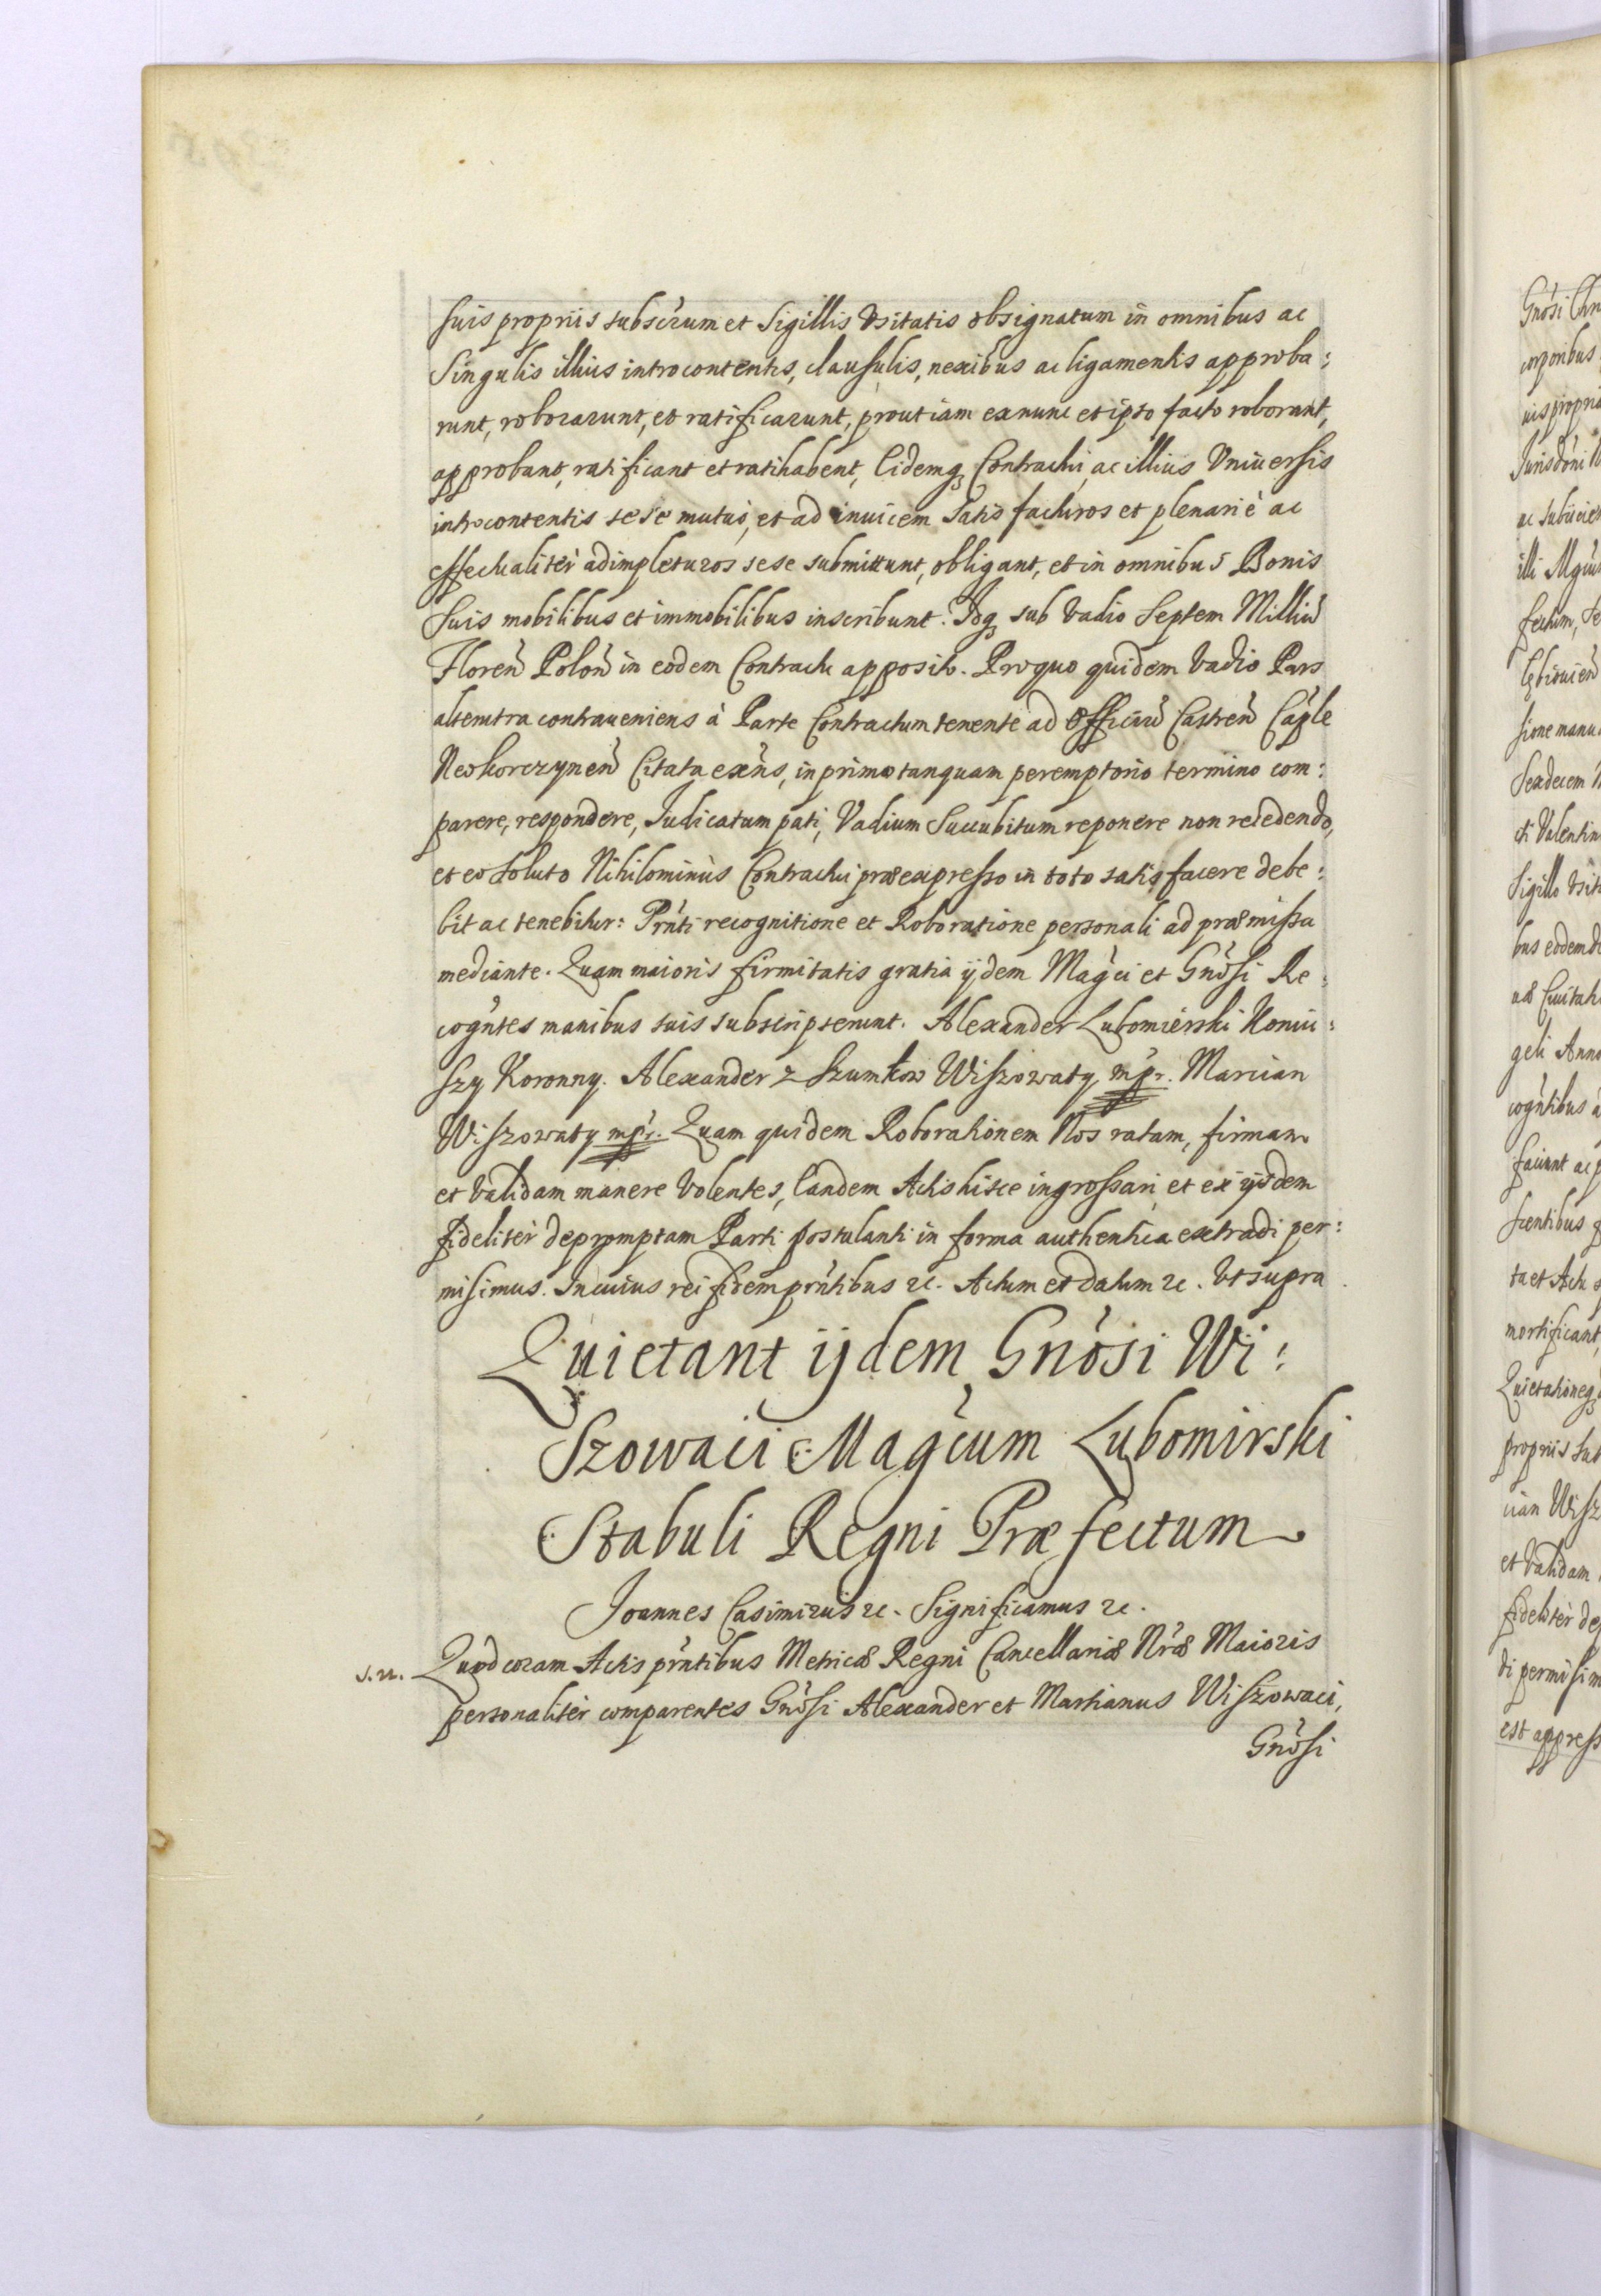 suis propriis subscrum et Sigillis Vsitatis obsignatum in omnibus ac
Singulis illius introcontentis, clausulis, nexibus ac ligamentis approba:
runt, roborarunt, et ratificarunt, prout iam ex nunc et ipso facto roborant,
approbant, ratificant et ratihabent, Eidemq Contractui ac illius Vniuersis
introcontentis sese mutuò, et ad inuicem satis facturos et plenariè ac
effectualitèr adimpleturos sese submittunt, obligant, et in omnibus Bonis
Suis mobilibus et immobilibus inscribunt. Idq sub Vadio Septem Milliu
Floren Polon in eodem Contractu apposito. Pro quo quidem Vadio Pars
alterutra contraueniens à Parte Contractum tenente ad Officiu Castren Caple
Neokorczynen Citata exns, in primo tanquam peremptorio termino com:
parere, respondere, Iudicatum pati, Vadium Succubitum reponere non recedendo,
et eo soluto Nihilominùs Contractui præexpresso in toto satisfacere debe:
bit ac tenebitur: Prnti recognitione et Roboratione personali ad præmissa
mediante. Quam maioris firmitatis gratia ijdem Magci et Gnosi Re:
cogntes manibus suis subscripserunt. Alexander Lubomierski Koniu:
szy Koronny. Alexander z Szumkow Wiszowaty mpr. Marcian
Wiszowaty mpr. Quam quidem Roborationem Nos ratam, firmam
et Validam manere Volentes, Eandem Actis hisce ingrossari et ex ijsdem
fidelitèr depromptam Parti postulanti in forma authentica extradi per:
misimus. In cuius rei fidem prntibus &c. Actum et datum &c. Vt supra
Quietant ijdem Gnosi Wi:
Szowaci Magcum Lubomirski
Stabuli Regni Præfectum
Joannes Casimirus &c. Significamus &c.
s. n. Quod coram Actis prntibus Metricæ Regni Cancellariæ Nræ Maioris
personalitèr comparentes Gnosi Alexander et Martianus Wiszowaci,
Gnosi